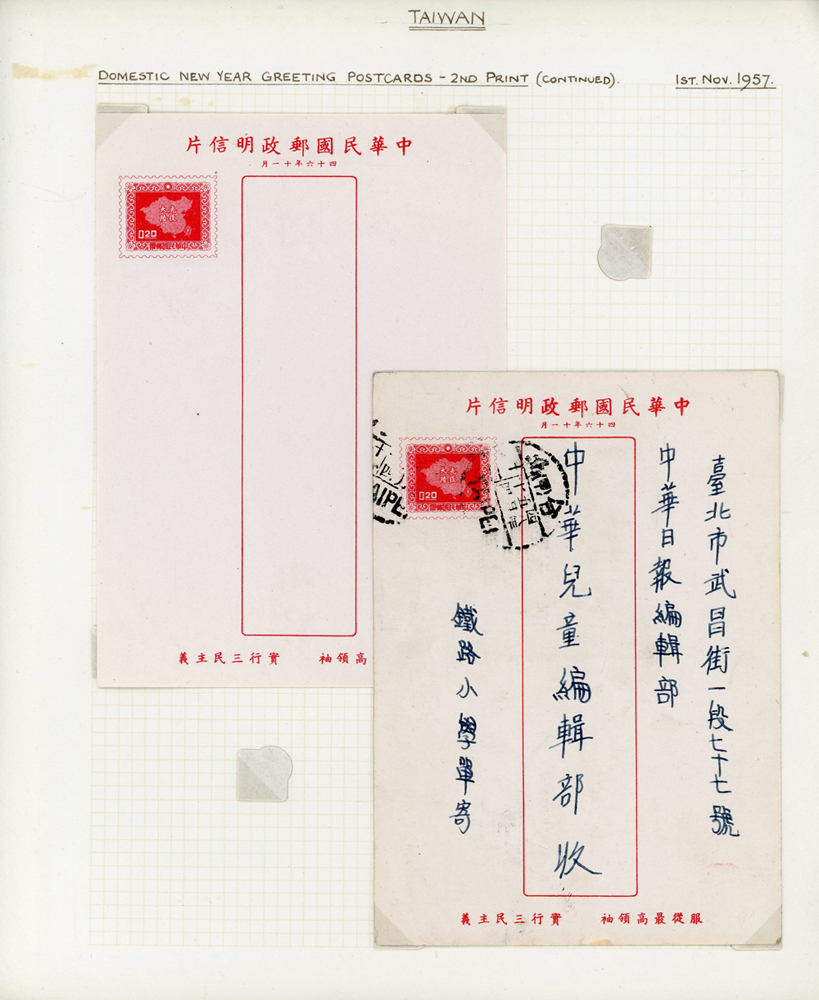 TAIWAN
DOMESTIC NEW YEAR GREETING POSTCARDS - 2ND PRINT (CONTINUED).
1ST. NOV. 1957.
中華民國郵政明信片
四十六年十一月
光復
大陸
0.20
中華民國郵票
高領袖
實行三民主義
中華民國郵政明信片
四十六年十一月
光復
大陸
0.20
臺北市武昌街一段七十七號
中華日報編輯部
中華兒童編輯部收
鐵路小學單寄
服從最高領袖
實行三民主義